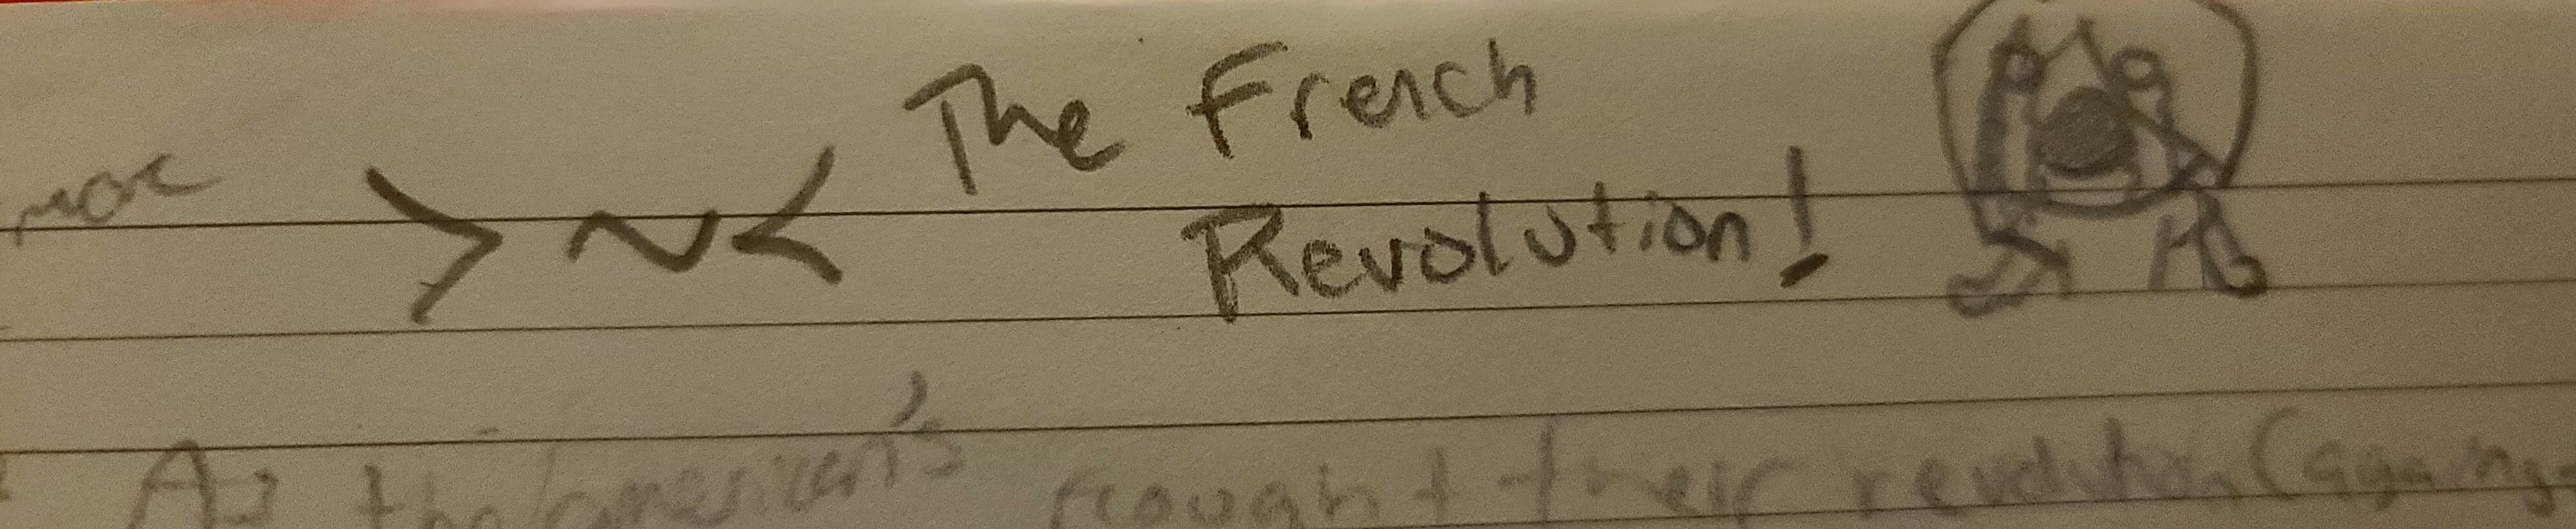 The French
Revolution!
As the american's fought their revolution (agains